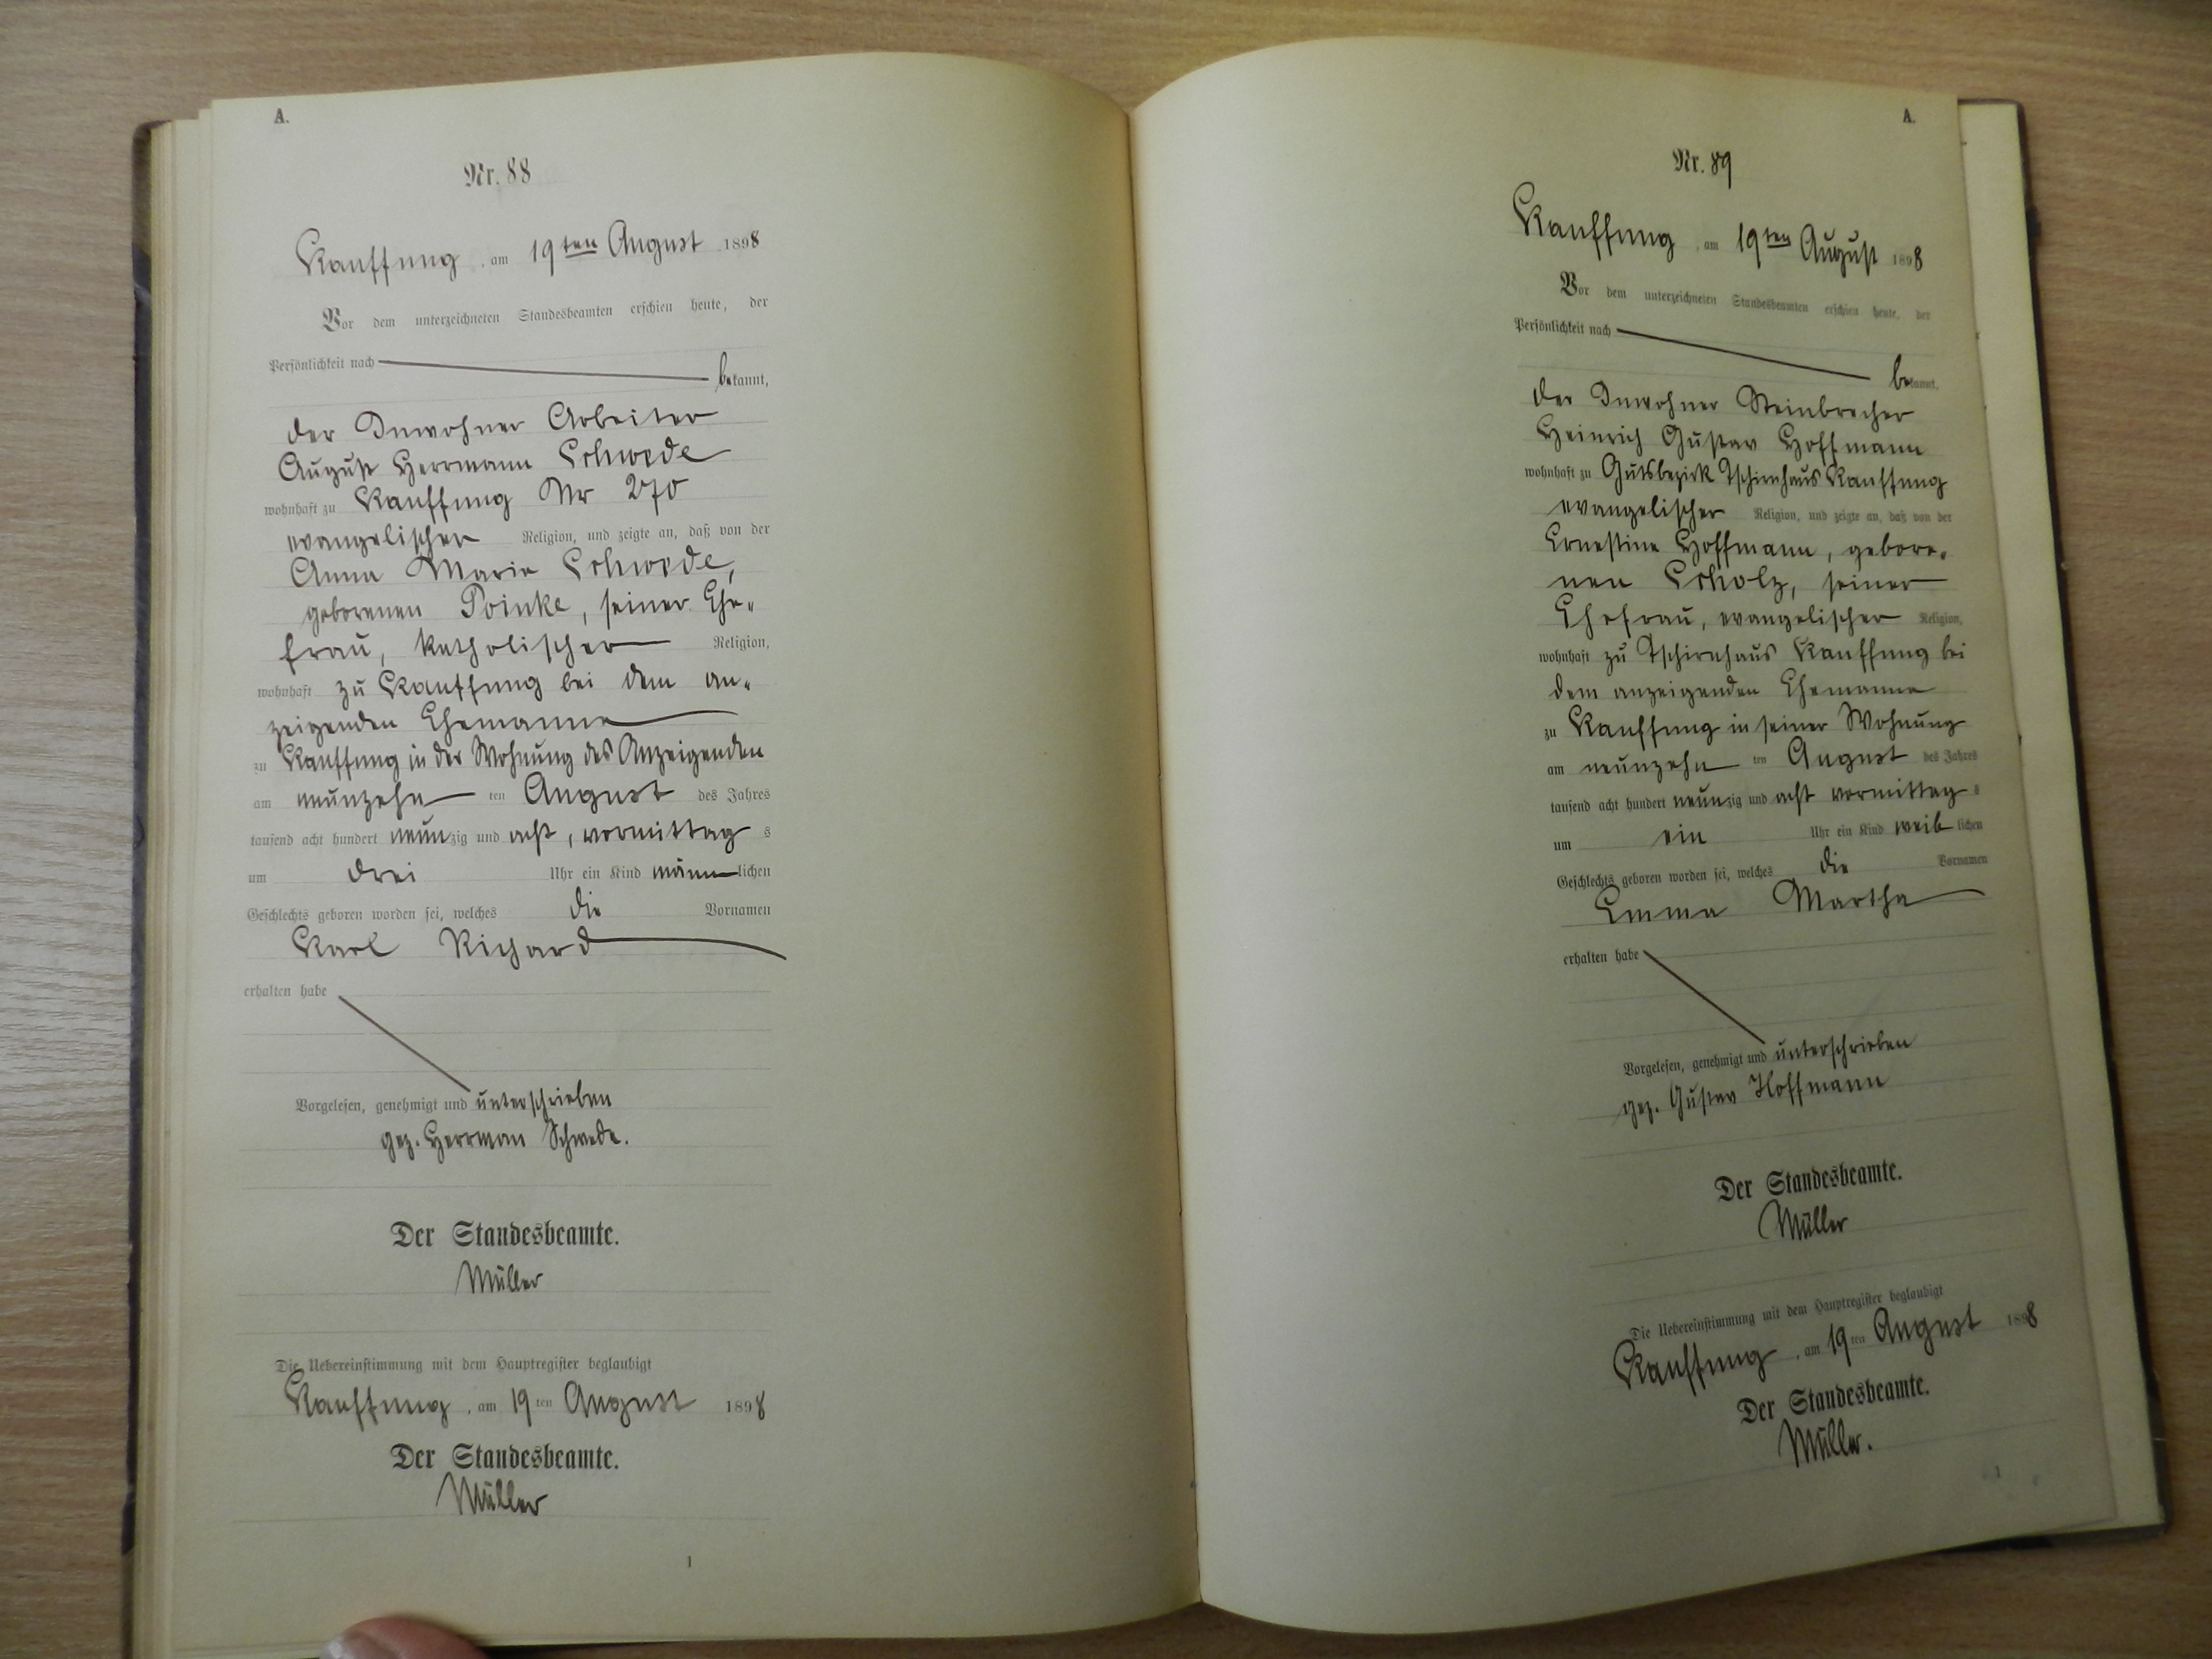 A.
Nr. 88
Kauffung, am 19ten August 1898
Vor dem unterzeichneten Standesbeamten erschien heute, der
Persönlichkeit nach
bekannt,
der Inwohner Arbeiter
August Herrmann Schwede
wohnhaft zu Kauffung Nr 270
evangelischer Religion, und zeigte an, daß von der
Anna Marie Schwede,
geborenen Poinke, seiner Ehe-
frau, katholischer Religion,
wohnhaft zu Kauffung bei dem an-
zeigenden Ehemanne
zu Kauffung in der Wohnung des Anzeigenden
am neunzehn ten August des Jahres
tausend acht hundert neunzig und acht, vormittags
um drei Uhr ein Kind männlichen
Geschlechts geboren worden sei, welches die Vornamen
Karl Richard
erhalten habe
Vorgelesen, genehmigt und unterschrieben
gez. Herrman Schwede.
Der Standesbeamte.
Müller
Die Uebereinstimmung mit dem Hauptregister beglaubigt
Kauffung, am 19ten August 1898
Der Standesbeamte.
Müller
1
A.
Nr. 89
Kauffung, am 19ten August 1898
Vor dem unterzeichneten Standesbeamten erschien heute, der
Persönlichkeit nach
bekannt,
der Inwohner Steinbrecher
Heinrich Gustav Hoffmann
wohnhaft zu Gutsbezirk Tschirnhaus Kauffung
evangelischer Religion, und zeigte an, daß von der
Ernestine Hoffmann, gebore-
nen Scholz, seiner
Ehefrau, evangelischer Religion,
wohnhaft zu Tschirnhaus Kauffung bei
dem anzeigenden Ehemanne
zu Kauffung in seiner Wohnung
am neunzehn ten August des Jahres
tausend acht hundert neunzig und acht vormittags
um ein Uhr ein Kind weiblichen
Geschlechts geboren worden sei, welches die Vornamen
Emma Martha
erhalten habe
Vorgelesen, genehmigt und unterschrieben
gez. Gustav Hoffmann
Der Standesbeamte.
Müller
Die Uebereinstimmung mit dem Hauptregister beglaubigt
Kauffung, am 19ten August 1898
Der Standesbeamte.
Müller.
1